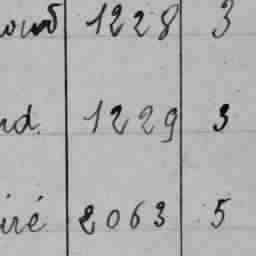 1228 3
nd. 1229 3
iré 2063 5